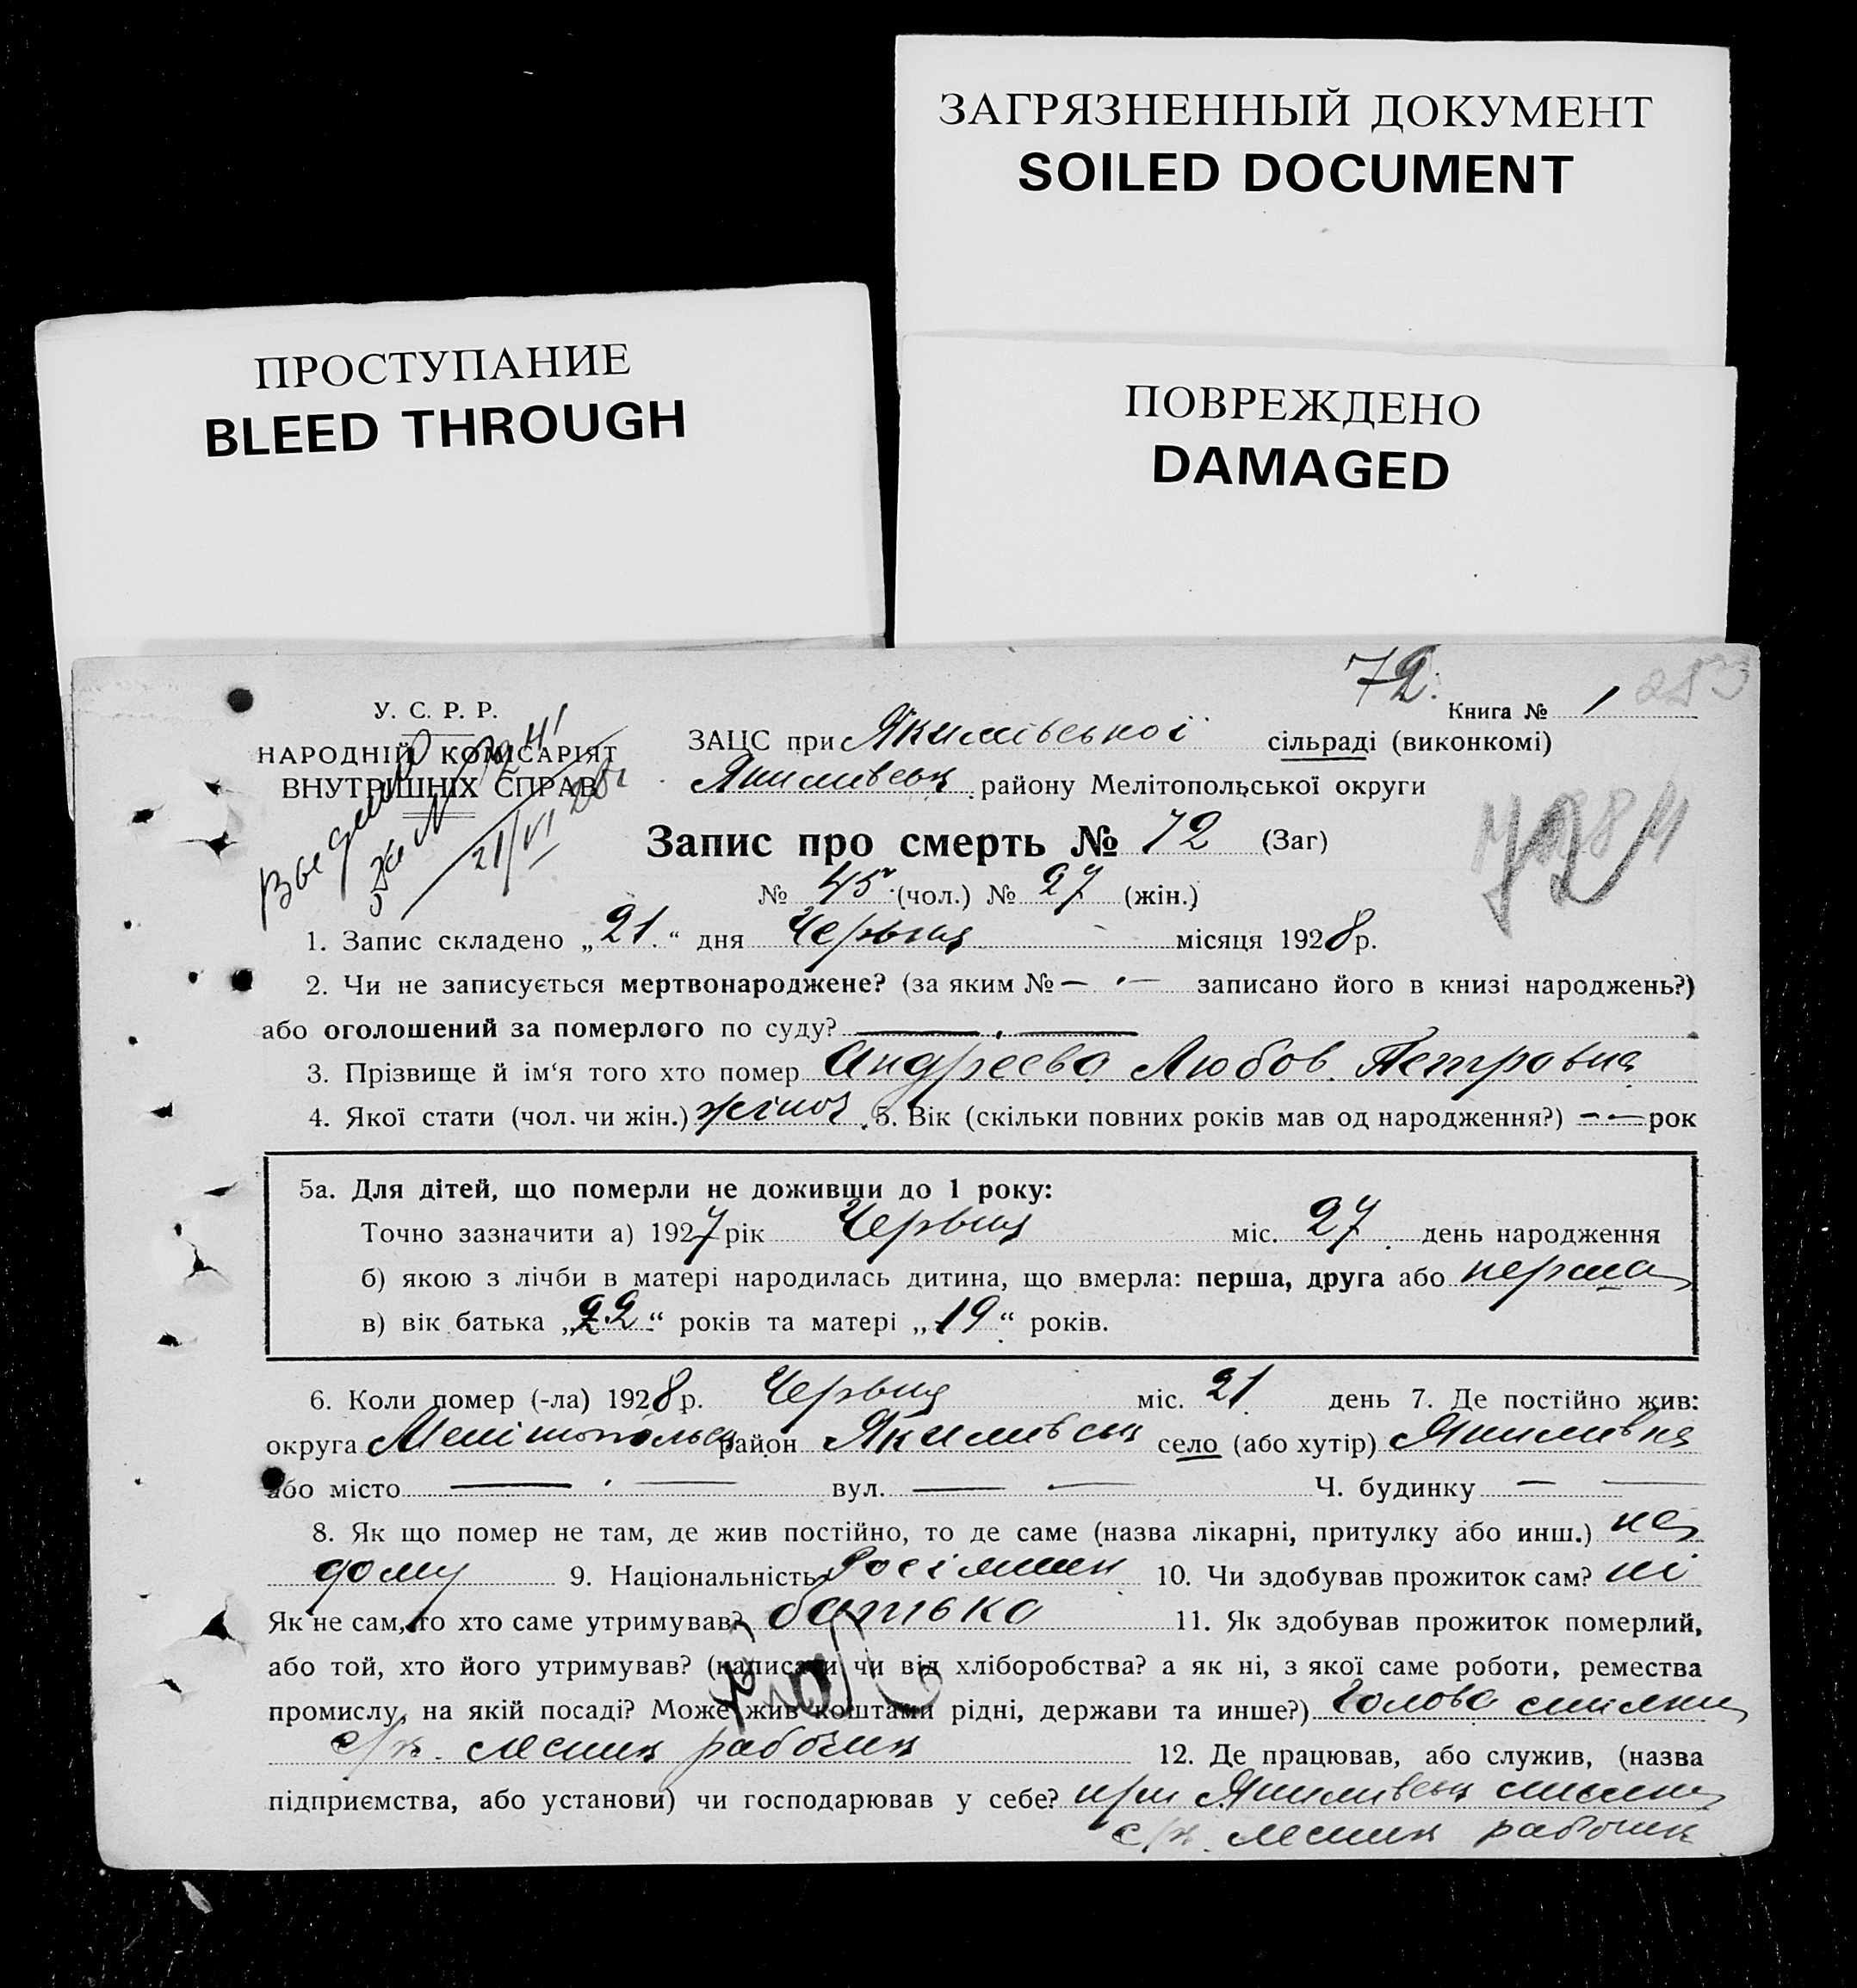 ЗАГРЯЗНЕННЫЙ ДОКУМЕНТ
SOILED DOCUMENT
ПРОСТУПАНИЕ
BLEED THROUGH
ПОВРЕЖДЕНО
DAMAGED
72.
283
Книга № 1
У. С. Р. Р.
НАРОДНІЙ КОМІСАРІЯТ
ВНУТРІШНІХ СПРАВ
21/VI
ЗАЦС при Якимівської сільраді (виконкомі)
Якимівськ району Мелітопольської округи
Запис про смерть № 72 (Заг)
72
№ 45 (чол.) № 27 (жін.)
1. Запис складено „21.“ дня Червня місяця 1928 р.
2. Чи не записується мертвонароджене? (за яким № — · — записано його в книзі народжень?)
або оголошений за померлого по суду? — · —
3. Прізвище й ім‘я того хто помер Андреева Любов Петровна
4. Якої стати (чол. чи жін.) жіноч. 5. Вік (скільки повних років мав од народження?) — · — рок
5а. Для дітей, що померли не доживши до 1 року:
Точно зазначити а) 1927 рік Червня міс. 27 день народження
б) якою з лічби в матері народилась дитина, що вмерла: перша, друга або перша
в) вік батька „22“ років та матері „19“ років.
6. Коли помер (-ла) 1928 р. Червня міс. 21 день 7. Де постійно жив:
округа Мелітопольск район Якимивськ село (або хутір) Якимивка
або місто — · — вул. — — Ч. будинку — —
8. Як що помер не там, де жив постійно, то де саме (назва лікарні, притулку або инш.) на
дому 9. Національність Росіянин 10. Чи здобував прожиток сам? ні
Як не сам, то хто саме утримував? батько 11. Як здобував прожиток померлий,
або той, хто його утримував? (написати чи від хліборобства? а як ні, з якої саме роботи, ремества
промислу, на якій посаді? Може жив коштами рідні, держави та инше?) Голова спілки
с/х. лесних рабочих 12. Де працював, або служив, (назва
підприємства, або установи) чи господарював у себе? при Якимивськ спилки
с/х. лесних рабочих